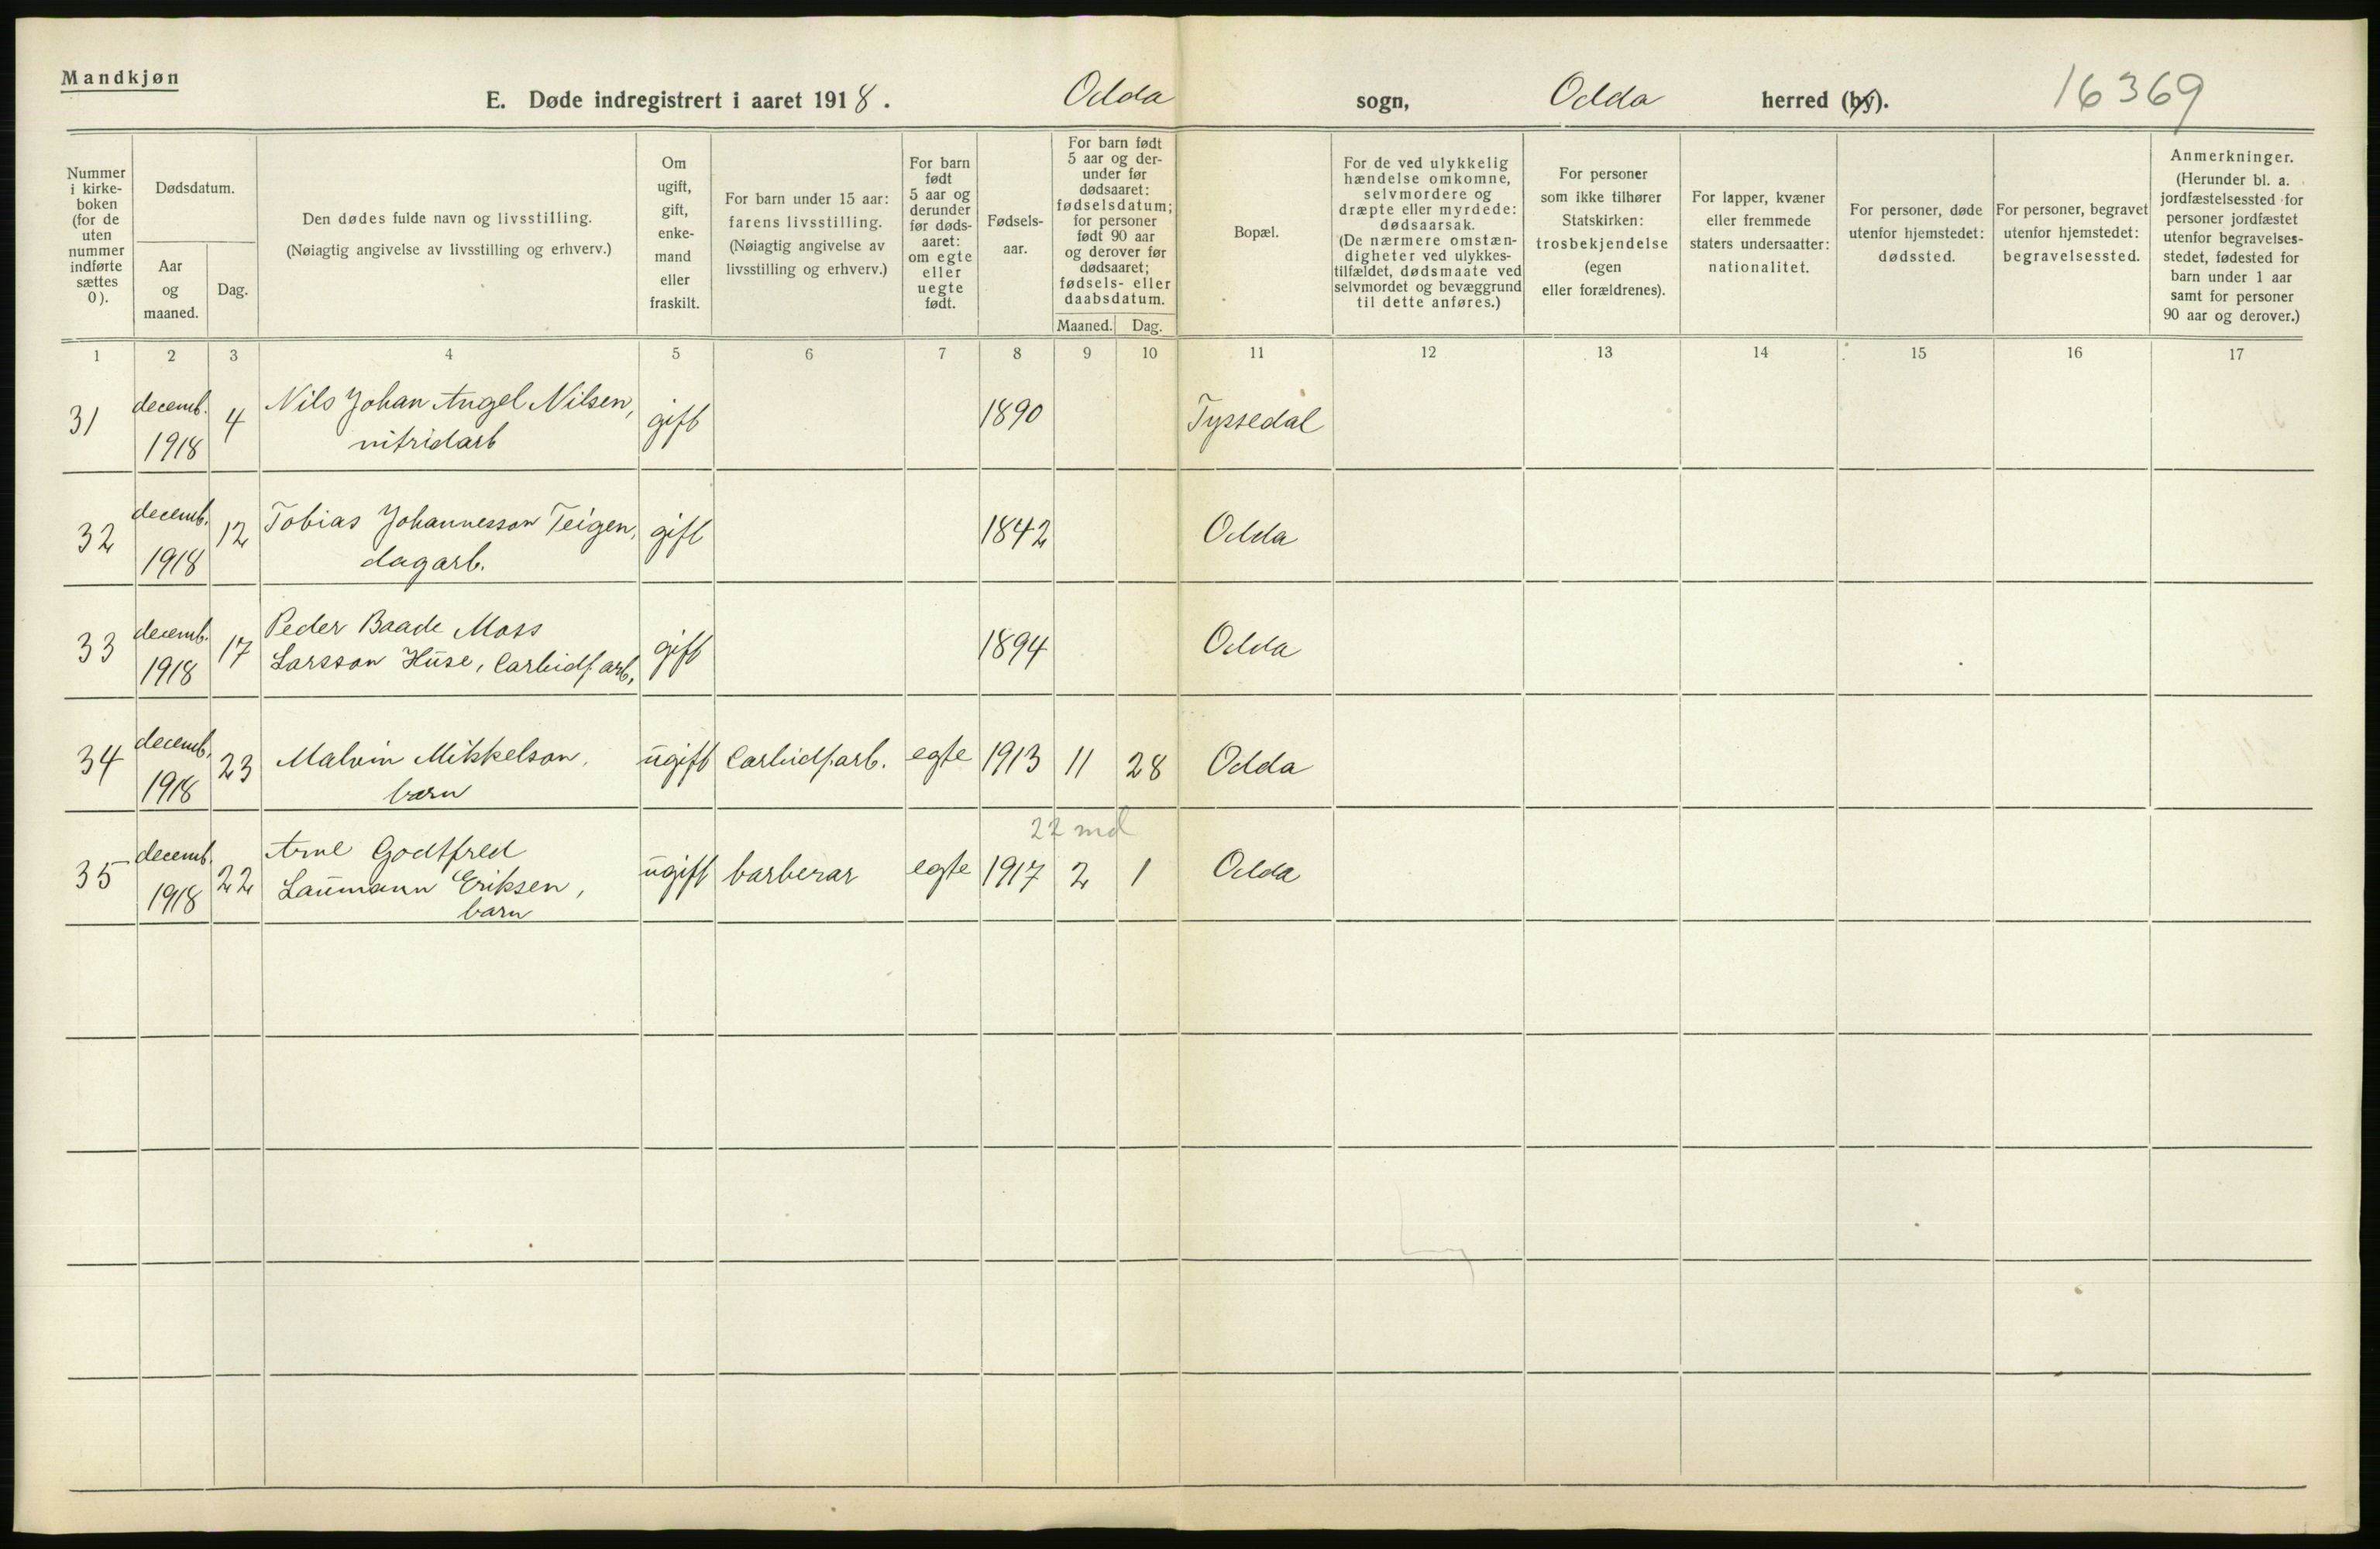 Mandkjøn
E. Døde indregistrert i aaret 1918. Odda sogn, Odda herred (by). 16369
Nummer i kirke-boken (for de uten nummer indførte sættes 0).
Dødsdatum.
Aar og maaned.
Dag.
Den dødes fulde navn og livsstilling.
(Nøiagtig angivelse av livsstilling og erhverv.)
Om ugift, gift, enke-mand eller fraskilt.
For barn under 15 aar: farens livsstilling.
(Nøiagtig angivelse av livsstilling og erhverv.)
For barn født 5 aar og derunder før døds-aaret: om egte eller uegte født.
Fødsels-aar.
For barn født 5 aar og der-under før dødsaaret: fødselsdatum; for personer født 90 aar og derover før dødsaaret; fødsels- eller daabsdatum.
Maaned. Dag.
Bopæl.
For de ved ulykkelig hændelse omkomne, selvmordere og dræpte eller myrdede: dødsaarsak.
(De nærmere omstæn-digheter ved ulykkes-tilfældet, dødsmaate ved selvmordet og bevæggrund til dette anføres.)
For personer som ikke tilhører Statskirken: trosbekjendelse (egen eller forældrenes).
For lapper, kvæner eller fremmede staters undersaatter: nationalitet.
For personer, døde utenfor hjemstedet: dødssted.
For personer, begravet utenfor hjemstedet: begravelsessted.
Anmerkninger.
(Herunder bl. a. jordfæstelsessted for personer jordfæstet utenfor begravelses-stedet, fødested for barn under 1 aar samt for personer 90 aar og derover.)
1 2 3 4 5 6 7 8 9 10 11 12 13 14 15 16 17
31 decemb. 1918 4 Nils Johan Angel Nilsen, nitridarb gift 1890 Tyssedal
32 decemb. 1918 12 Tobias Johannesson Teigen, dagarb. gift 1842 Odda
33 decemb. 1918 17 Peder Baade Moss Larsson Huse, Carbidf. arb. gift 1894 Odda
34 decemb. 1918 23 Malvin Mikkelson, barn ugift Carbidf.arb. egte 1913 11 28 Odda
22 md
35 decemb. 1918 22 Arne Godtfred Laumann Eriksen, barn ugift barberar egte 1917 2 1 Odda